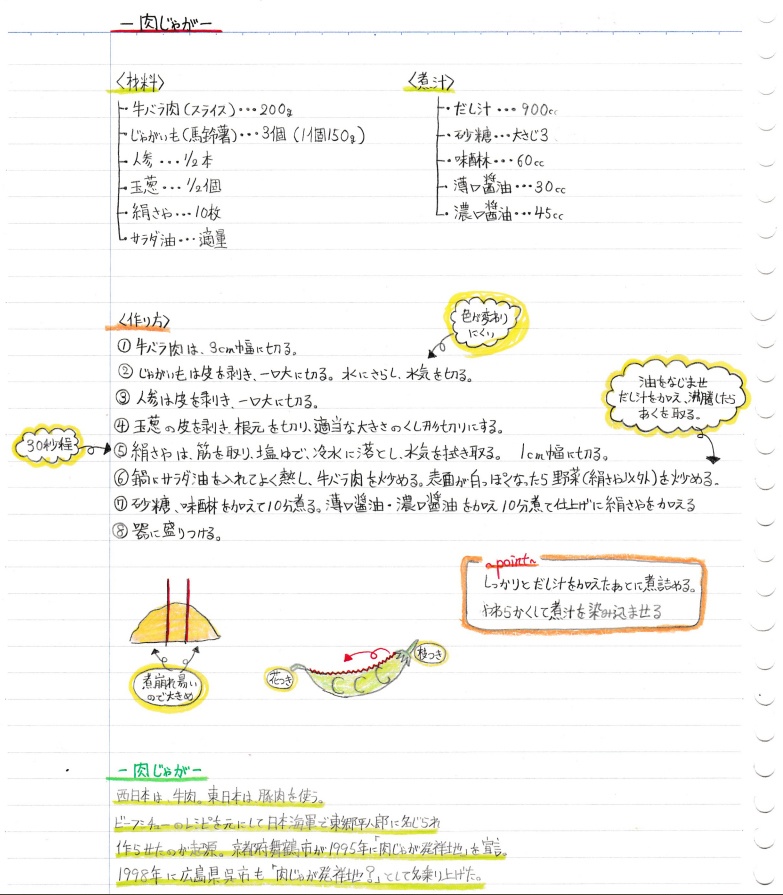 －肉じゃが－
〈材料〉
・牛バラ肉(スライス)…200g
・じゃがいも(馬鈴薯)…3個 (1個150g)
・人参…1/2本
・玉葱…1/2個
・絹さや…10枚
・サラダ油…適量
〈煮汁〉
・だし汁…900cc
・砂糖…大さじ3
・味醂…60cc
・薄口醤油…30cc
・濃口醤油…45cc
〈作り方〉
色が変わり
にくい
① 牛バラ肉は、3cm幅に切る。
② じゃがいもは皮を剥き、一口大に切る。水にさらし、水気を切る。
③ 人参は皮を剥き、一口大に切る。
油をなじませ
だし汁を加え、沸騰したら
あくを取る。
④ 玉葱の皮を剥き、根元を切り、適当な大きさのくし形切りにする。
30秒程
⑤ 絹さやは、筋を取り、塩ゆで、冷水に落とし、水気を拭き取る。 1cm幅に切る。
⑥ 鍋にサラダ油を入れてよく熱し、牛バラ肉を炒める。表面が白っぽくなったら野菜(絹さや以外)を炒める。
⑦ 砂糖、味醂を加えて10分煮る。薄口醤油・濃口醤油を加え10分煮て仕上げに絹さやを加える
⑧ 器に盛りつける。
point
しっかりとだし汁を加えたあとに煮詰める。
やわらかくして煮汁を染み込ませる
煮崩れ易い
ので大きめ
花つき
枝つき
－肉じゃが－
西日本は、牛肉。東日本は、豚肉を使う。
ビーフシチューのレシピを元にして日本海軍で東郷平八郎に命じられ
作らせたのが起源。京都府舞鶴市が1995年に「肉じゃが発祥地」を宣言。
1998年に広島県呉市も「肉じゃが発祥地?」として名乗り上げた。